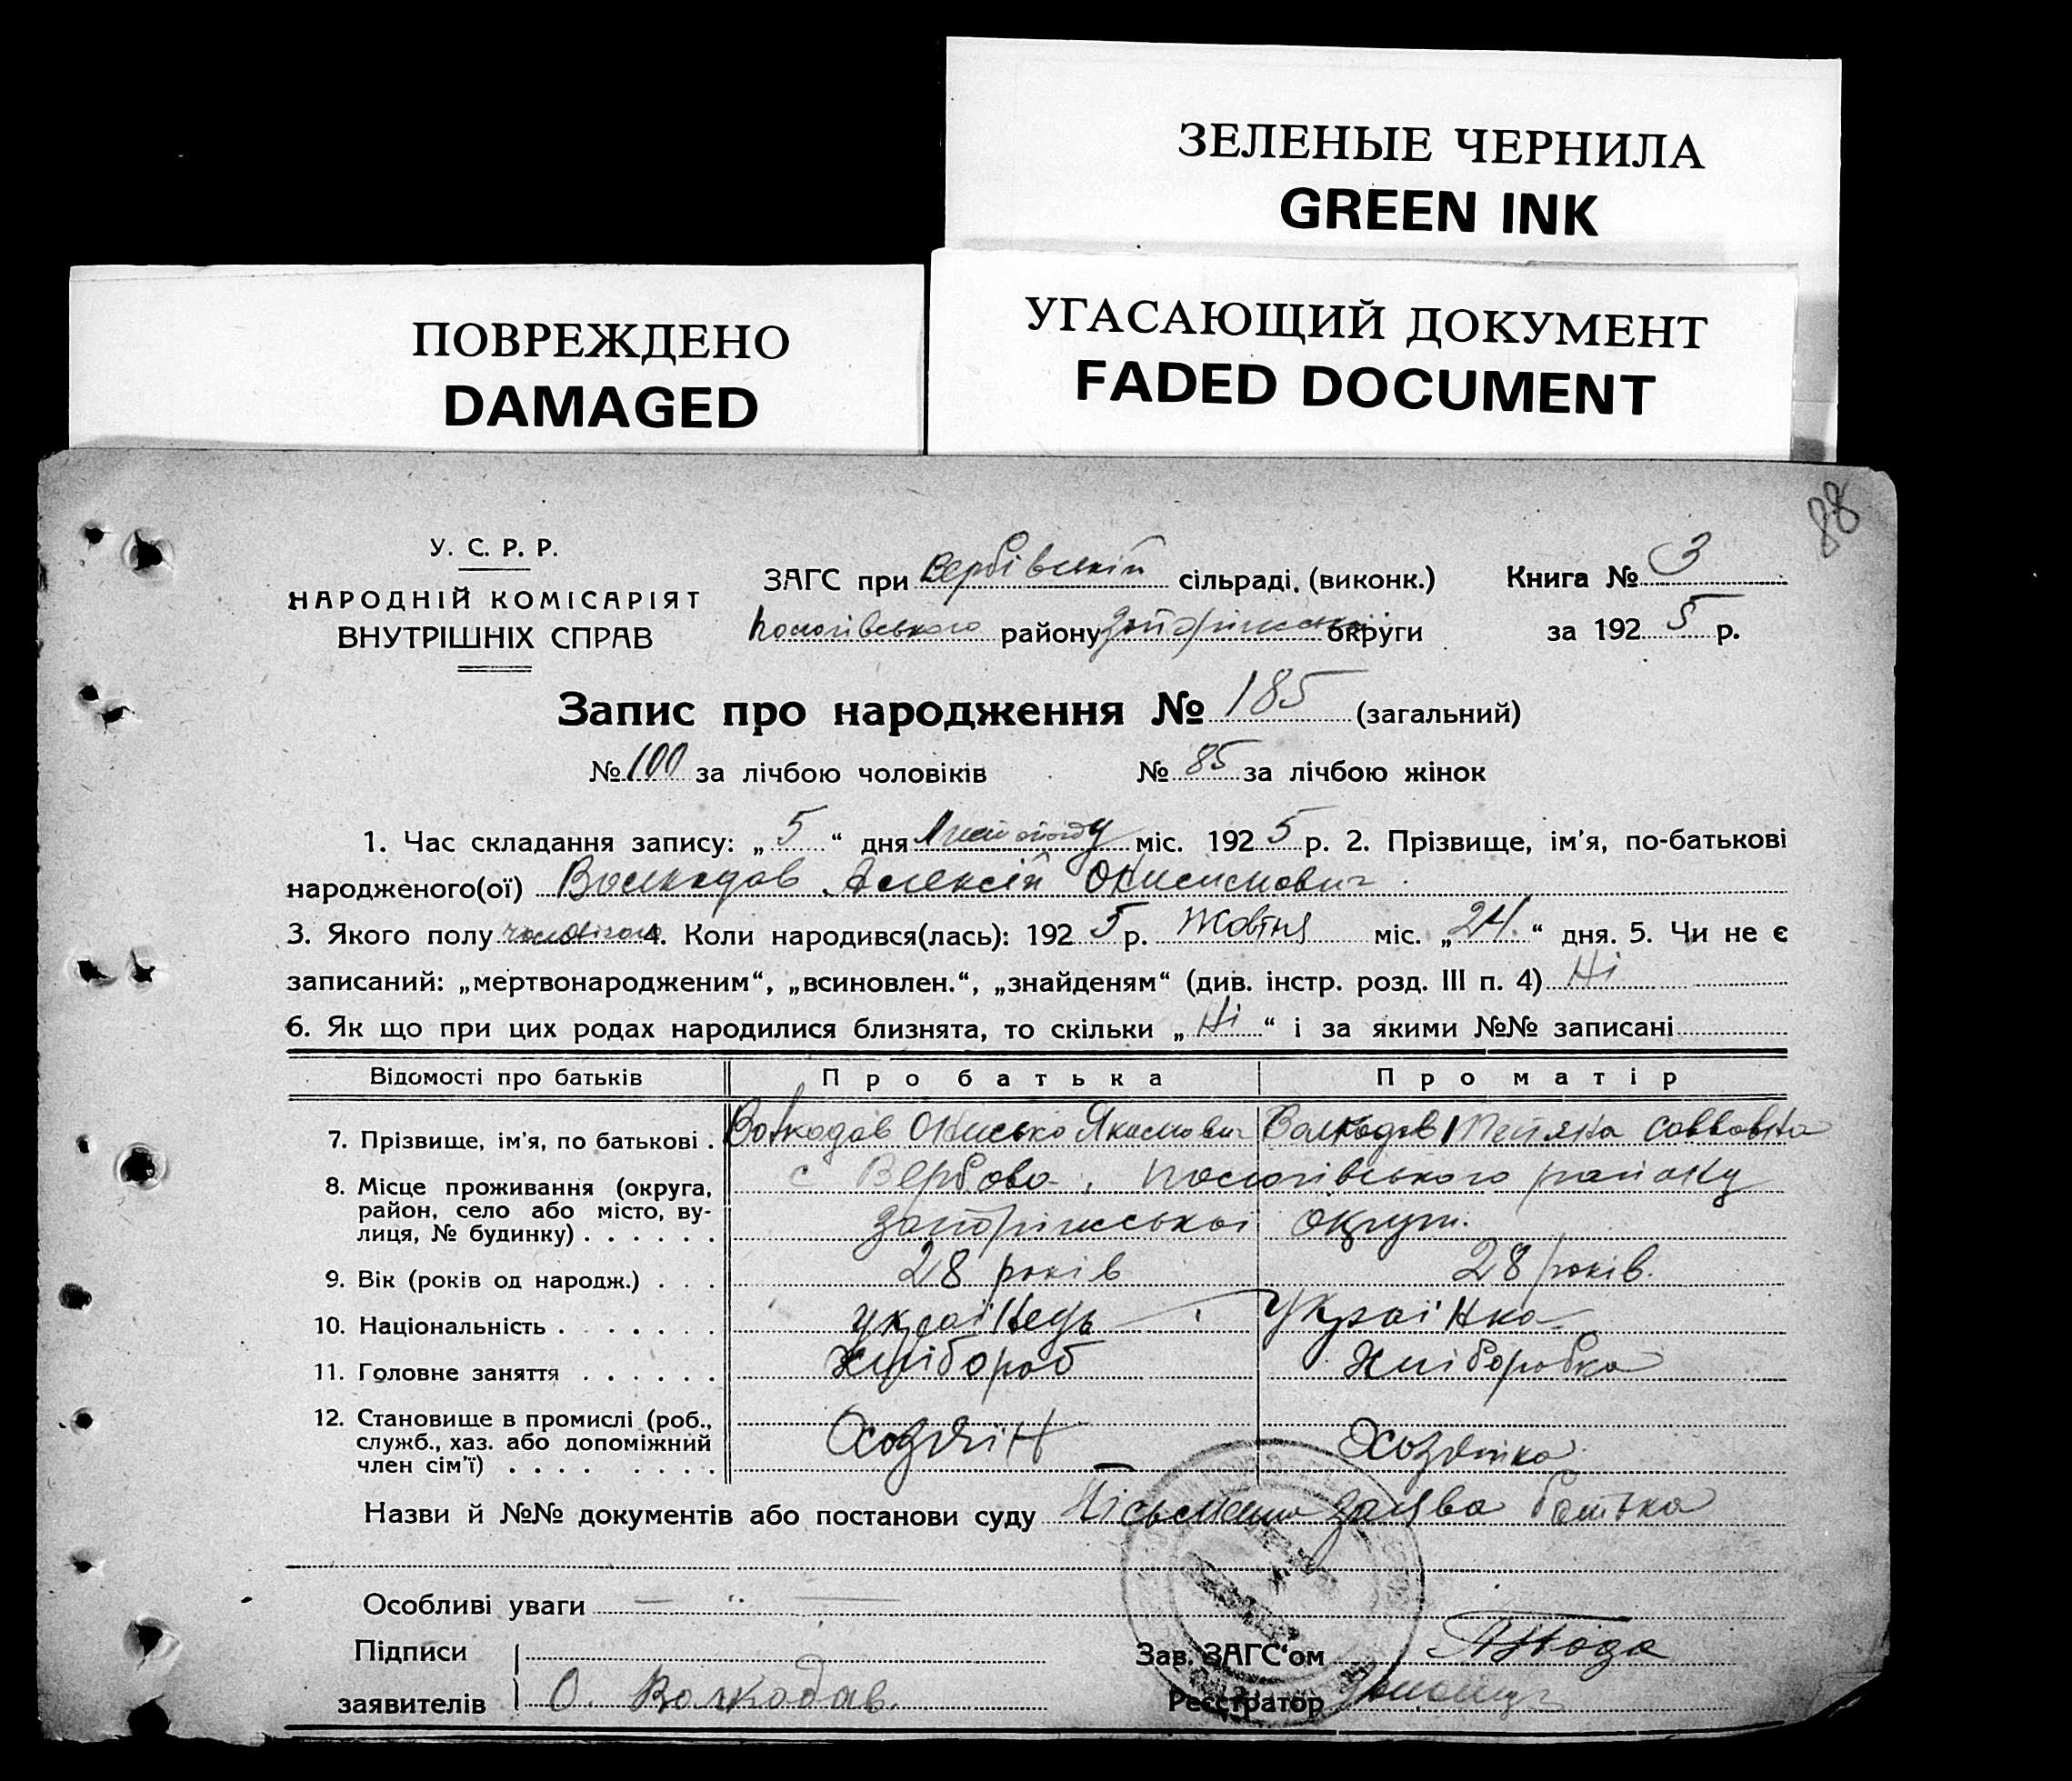 ЗЕЛЕНЫЕ ЧЕРНИЛА
GREEN INK
ПОВРЕЖДЕНО
DAMAGED
УГАСАЮЩИЙ ДОКУМЕНТ
FADED DOCUMENT
88
У. С. Р. Р.
НАРОДНІЙ КОМІСАРІЯТ
ВНУТРІШНІХ СПРАВ
ЗАГС при Вербівській сільраді, (виконк.)
Пологівського району Запоріжської округи
Книга № 3
за 1925 р.
Запис про народження № 185 (загальний)
№ 100 за лічбою чоловіків № 85 за лічбою жінок
1. Час складання запису: „5“ дня Листопаду міс. 1925 р. 2. Прізвище, ім’я, по-батькові
народженого(ої) Волкодав Алексій Онисимович
3. Якого полу чоловічого 4. Коли народився(лась): 1925 р. Жовтня міс. „24“ дня. 5. Чи не є
записаний: „мертвонародженим“, „всиновлен.“, „знайденям“ (див. інстр. розд. III п. 4) Ні
6. Як що при цих родах народилися близнята, то скільки „Ні“ і за якими №№ записані
Відомості про батьків Про батька Про матір
7. Прізвище, ім’я, по батькові . Волкодав Онисько Якимович Волкодав Тетяна Савовна
8. Місце проживання (округа, район, село або місто, ву-лиця, № будинку) . . . . . . с Вербово, Пологівського району
Запоріжської округи.
9. Вік (років од народж.) . . . 28 років 28 років.
10. Національність . . . . . . українець українка
11. Головне заняття . . . . . . хлібороб хліборобка
12. Становище в промислі (роб., служб., хаз. або допоміжний член сім’ї) . . . . . . . . Хозяїн Хозяйка
Назви й №№ документів або постанови суду Пісьмена заява батька
Особливі уваги
Підписи
заявителів О. Волкодав.
Зав. ЗАГС‘ом
Реєстратор